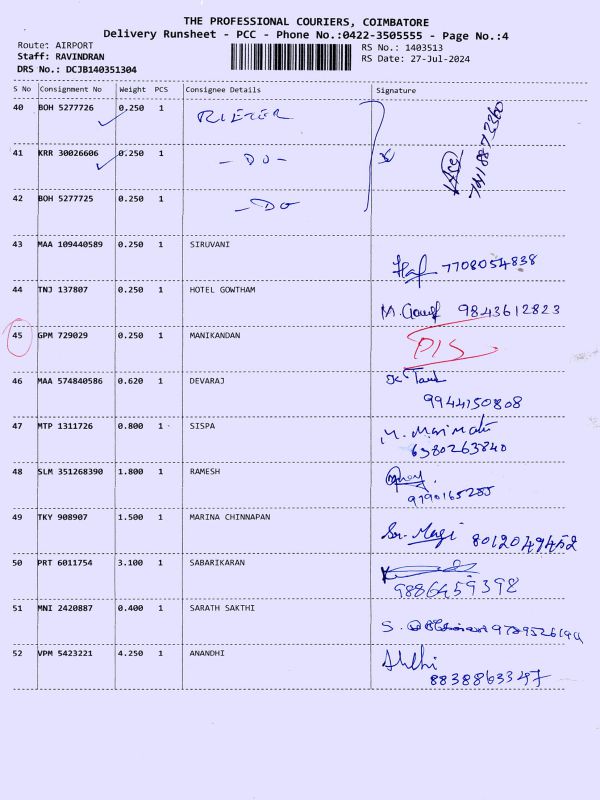 THE PROFESSIONAL COURIERS, COIMBATORE
Delivery Runsheet - PCC - Phone No.:0422-3505555 - Page No.:4
Route: AIRPORT
RS No.: 1403513
Staff: RAVINDRAN
RS Date: 27-Jul-2024
DRS No.: DCJB140351304
S No Consignment No Weight PCS Consignee Details Signature
40 BOH 5277726 0.250 1 RIETER
7418873360
41 KRR 30026606 0.250 1 - DO -
42 BOH 5277725 0.250 1 - DO
43 MAA 109440589 0.250 1 SIRUVANI
7708054838
44 TNJ 137807 0.250 1 HOTEL GOWTHAM
M. 9843612823
45 GPM 729029 0.250 1 MANIKANDAN
46 MAA 574840586 0.620 1 DEVARAJ
9944150808
47 MTP 1311726 0.800 1 SISPA
M. Marimutu
6380263840
48 SLM 351268390 1.800 1 RAMESH
9790165285
49 TKY 908907 1.500 1 MARINA CHINNAPAN
8012049452
50 PRT 6011754 3.100 1 SABARIKARAN
9886459398
51 MNI 2420887 0.400 1 SARATH SAKTHI
S.
52 VPM 5423221 4.250 1 ANANDHI
8838863347